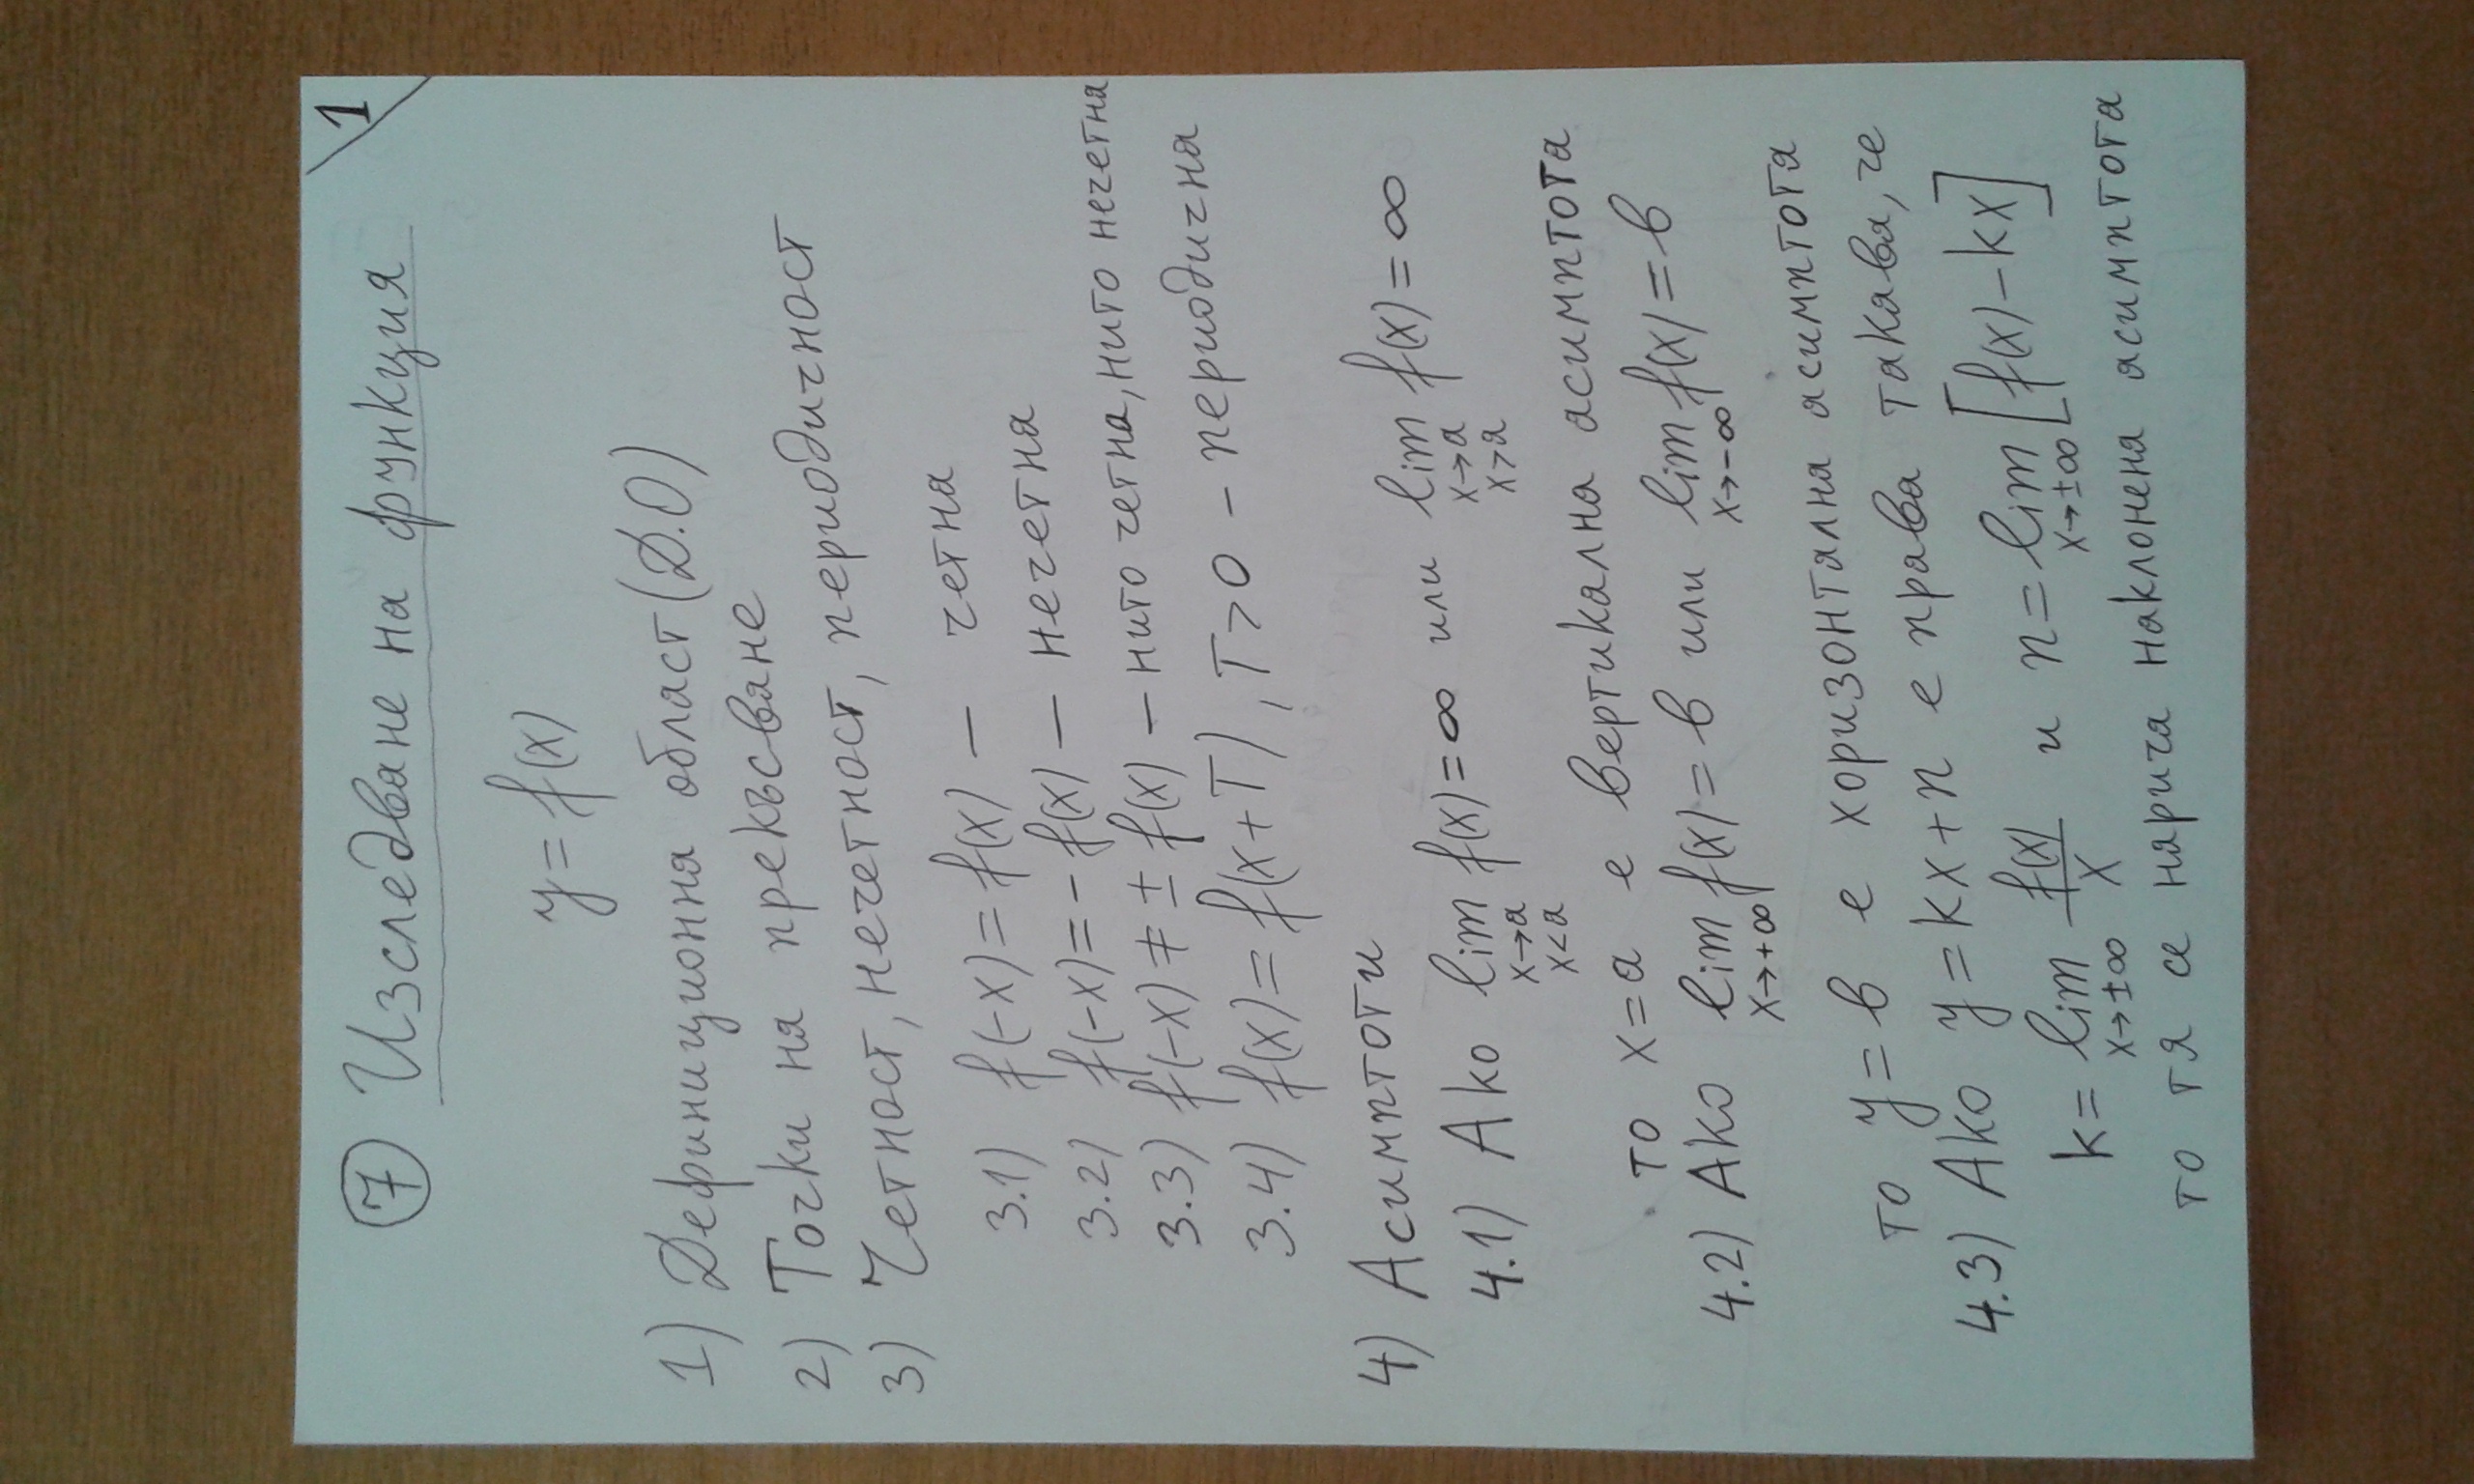 1
⑦ Изследване на функция
y = f(x)
1) Дефиниционна област (Д.О)
2) Точки на прекъсване
3) Четност, нечетност, периодичност
3.1) f(-x) = f(x) — четна
3.2) f(-x) = - f(x) — нечетна
3.3) f(-x) ≠ ± f(x) — нито четна, нито нечетна
3.4) f(x) = f(x+T), T>0 - периодична
4) Асимптоти
4.1) Ако lim f(x) = ∞ или lim f(x) = ∞
x→a x→a
x<a x>a
то x=a е вертикална асимптота
4.2) Ако lim f(x) = b или lim f(x) = b
x→+∞ x→-∞
то y=b е хоризонтална асимптота
4.3) Ако y=kx+n е права такава, че
k= lim f(x)/x и n= lim [f(x)-kx]
x→±∞ x→±∞
то тя се нарича наклонена асимптота